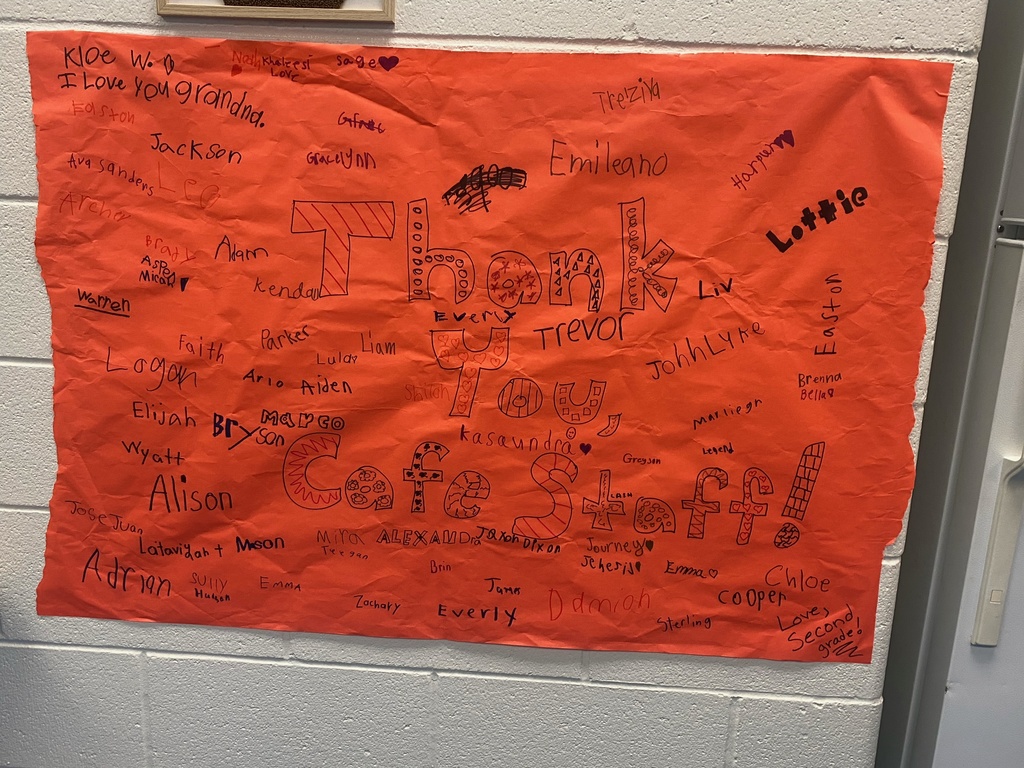 Kloe W.
I Love you grandma.
Khaleesi
Love
Sage
Tre'ziya
Easton
Jackson
Gracelynn
Emileano
Harpur
Lottie
Ava Sanders
Leo
Archer
Adam
Kendall
Micah
Warren
Thank
Liv
Easton
Everly
Trevor
Faith
Parker
Liam
JohhLyne
Logan
Arlo
Aiden
You,
Brenna
Bella
Elijah
Bryson
Marco
Kasaundra
Marliegh
Legend
Grayson
Wyatt
Alison
Cafe Staff!
Jose Juan
Mason
Mira
Teegan
ALEXANDra
Jaxon
Dixon
Journey
Adrian
Sully
Emma
Brin
Emma
Chloe
Cooper
Zachary
Everly
Damiah
Sterling
Love,
Second
grade!